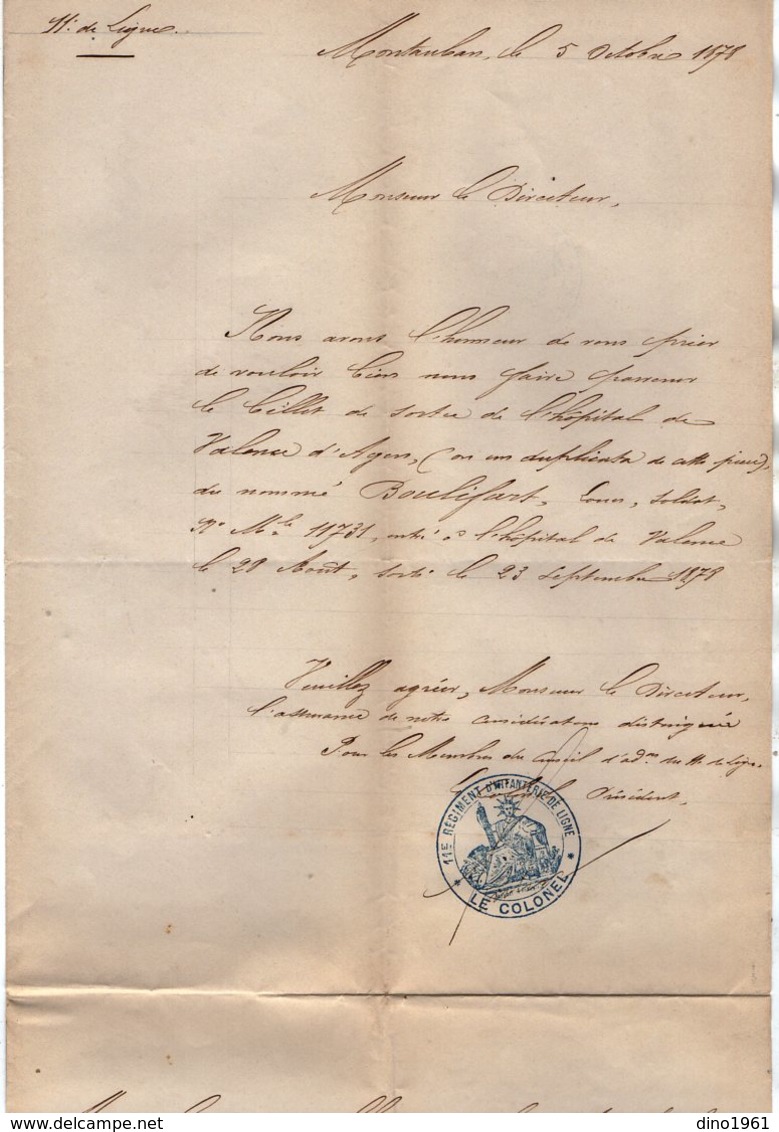 11e de Ligne.
Montauban, le 5 Octobre 1878
Monsieur le Directeur,
Nous avons l'honneur de vous prier
de vouloir bien nous faire parvenir
le billet de sortie de l'hôpital de
Valence d'Agen, (ou un duplicata de cette pièce),
du nommé Boulifart, Louis, soldat,
No Mle 11731, entré à l'hôpital de Valence
le 28 Août, sorti le 23 Septembre 1878
Veuillez agréer, Monsieur le Directeur,
l'assurance de notre considération distinguée
Pour les Membres du Conseil d'adon du 11e de Ligne.
Le Président,
11E REGIMENT D'INFANTERIE DE LIGNE
* LE COLONEL *
delcampe.net
dino1961